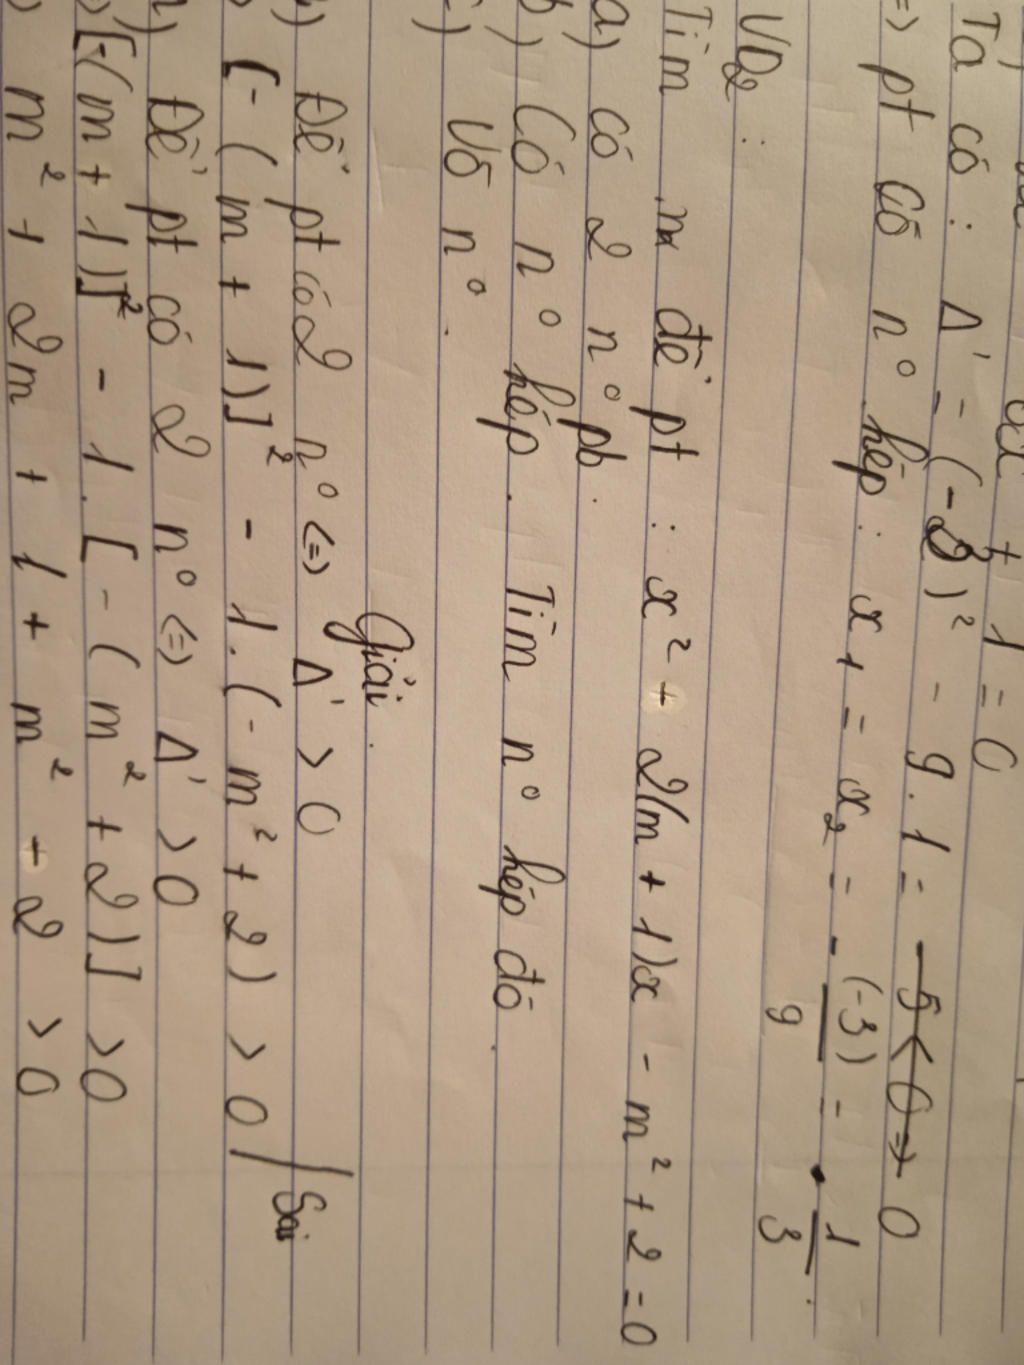 + 1 = 0
Ta có : Δ' = (-3)² - 9.1 = 0
=> pt có nº kép : x₁ = x₂ = - (-3)/9 = 1/3.
VD2 :
Tìm m để pt : x² + 2(m + 1)x - m² + 2 = 0
a) có 2 nº pb.
b) Có nº kép. Tìm nº kép đó.
c) Vô nº.
Giải.
Để pt có 2 nº <=> Δ' > 0
[-(m + 1)]² - 1.(-m² + 2) > 0 Sai
a) Để pt có 2 nº <=> Δ' > 0
[-(m + 1)]² - 1.[-(m² + 2)] > 0
m² + 2m + 1 + m² - 2 > 0